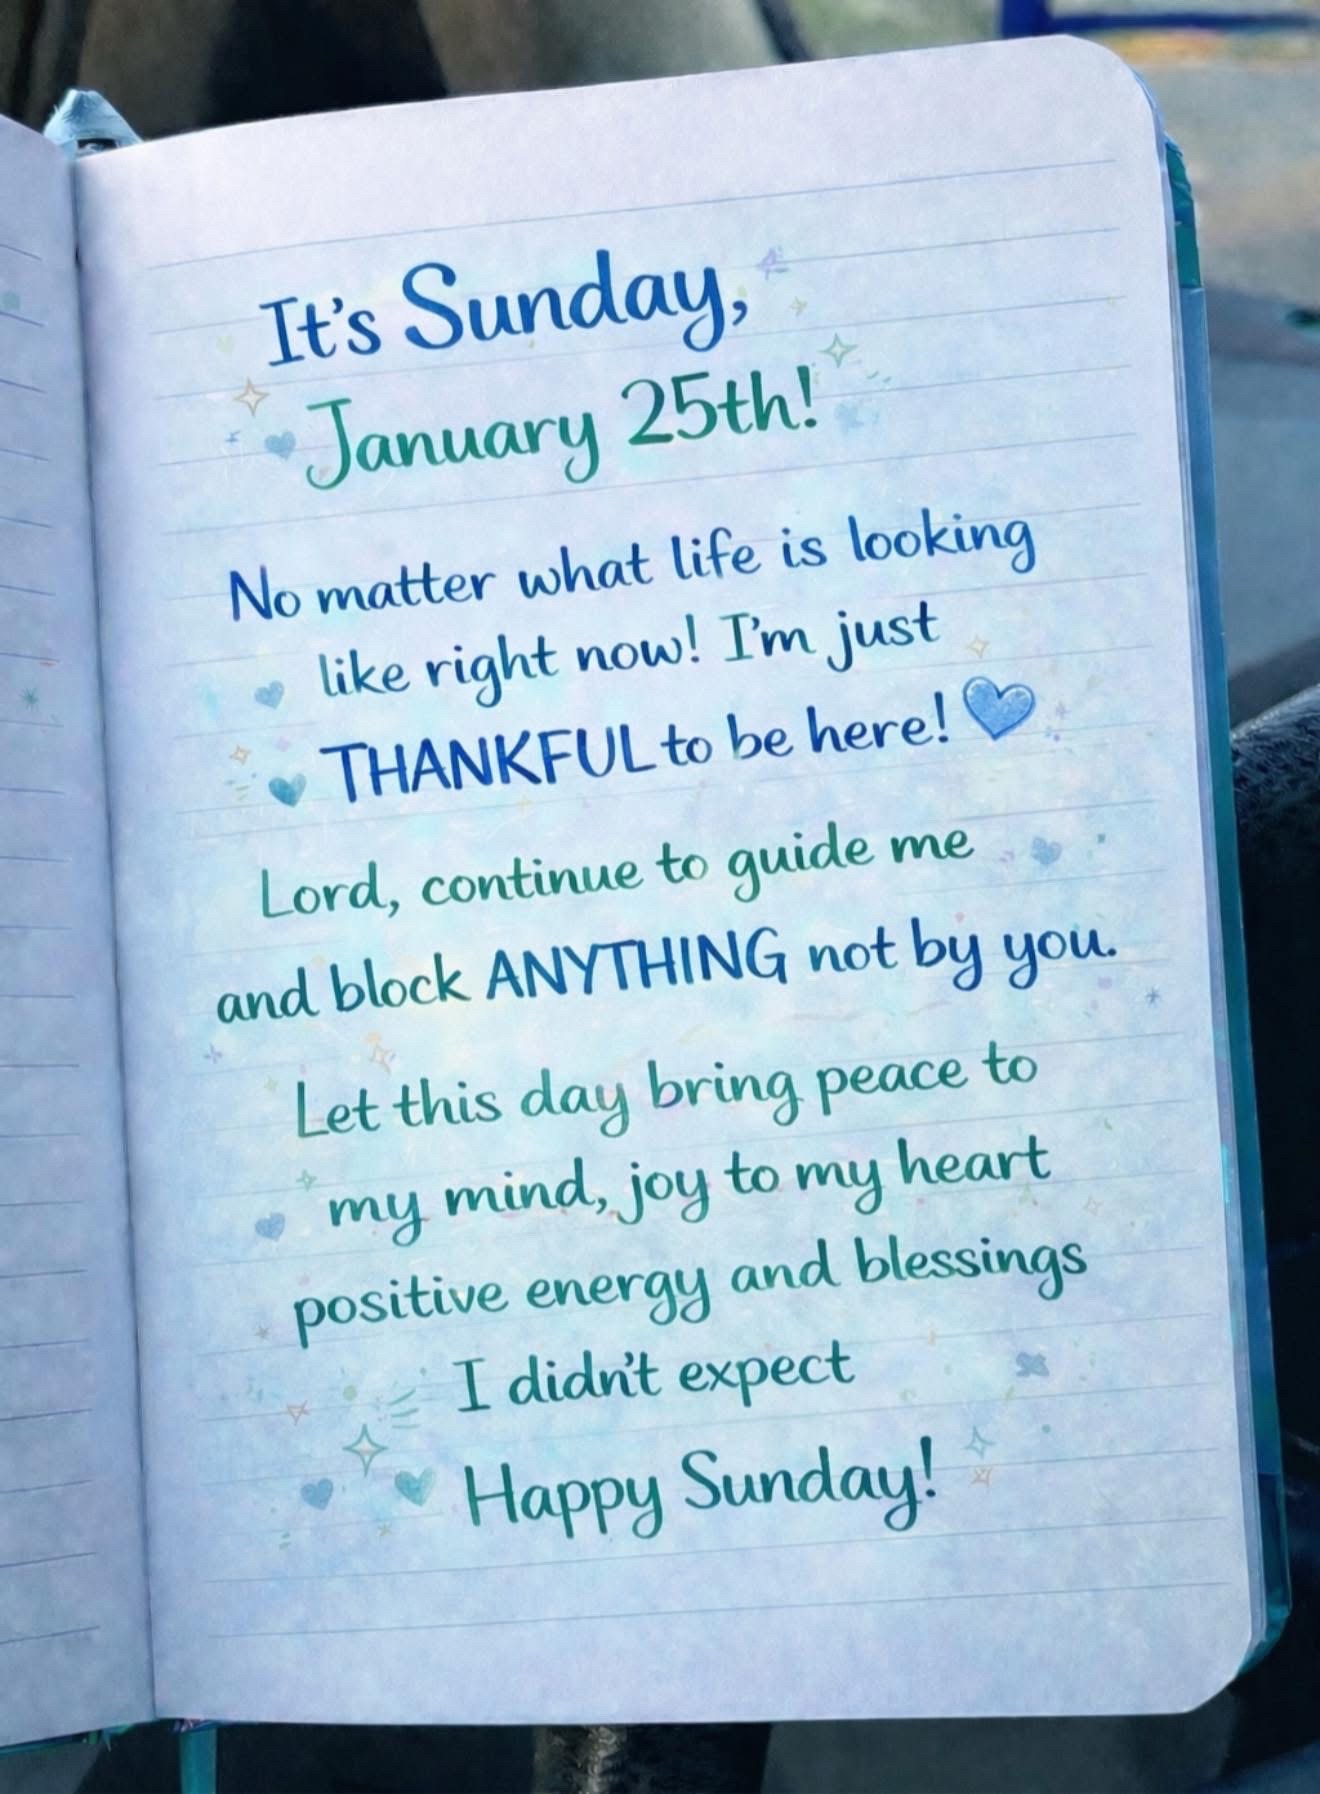 It's Sunday,
January 25th!
No matter what life is looking
like right now! I'm just
THANKFUL to be here! 💙
Lord, continue to guide me
and block ANYTHING not by you.
Let this day bring peace to
my mind, joy to my heart
positive energy and blessings
I didn't expect
Happy Sunday!